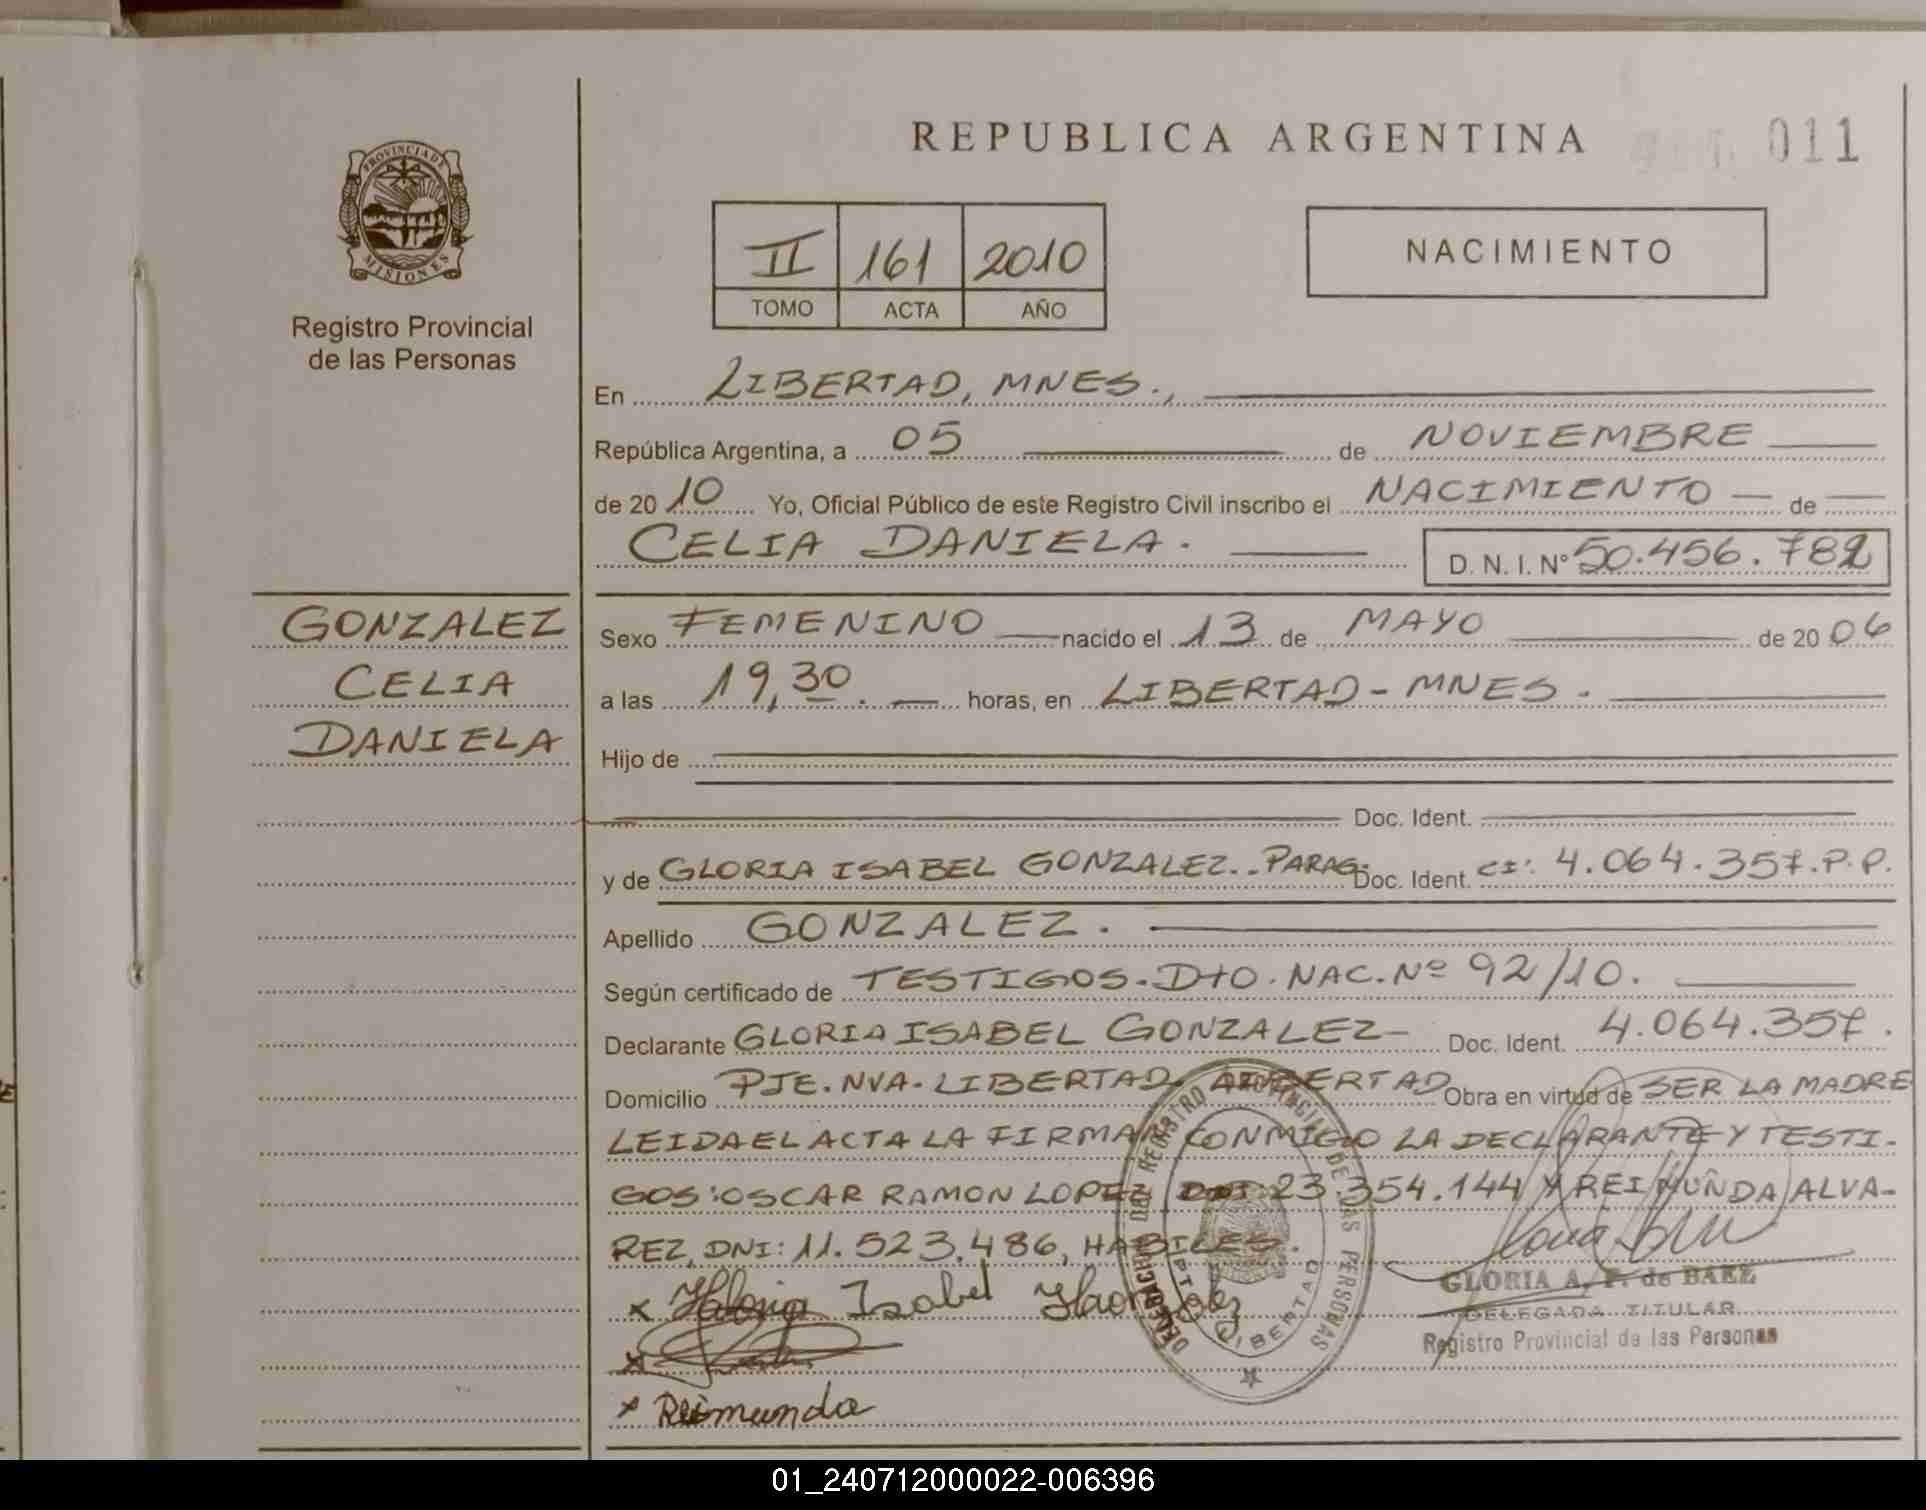 REPUBLICA ARGENTINA
011
PROVINCIA DE
MISIONES
Registro Provincial
de las Personas
II 161 2010
TOMO ACTA AÑO
NACIMIENTO
En LIBERTAD, MNES.,
República Argentina, a 05 de NOVIEMBRE
de 2010 Yo, Oficial Público de este Registro Civil inscribo el NACIMIENTO de
CELIA DANIELA. D. N. I. Nº 50.456.782
GONZALEZ
CELIA
DANIELA
Sexo FEMENINO nacido el 13 de MAYO de 2006
a las 19,30. horas, en LIBERTAD - MNES.
Hijo de
Doc. Ident.
y de GLORIA ISABEL GONZALEZ.. PARAG. Doc. Ident. CI: 4.064.357.P.P.
Apellido GONZALEZ.
Según certificado de TESTIGOS. DTO. NAC. Nº 92/10.
Declarante GLORIA ISABEL GONZALEZ- Doc. Ident. 4.064.357.
Domicilio PJE. NVA. LIBERTAD, LIBERTAD Obra en virtud de SER LA MADRE
LEIDA EL ACTA LA FIRMAN CONMIGO LA DECLARANTE Y TESTI-
GOS: OSCAR RAMON LOPEZ DNI: 23.354.144 Y REIMUNDA ALVA-
REZ, DNI: 11.523.486, HABILES.
x Gloria Isabel Gonzalez
x
x Reimunda
DELEGACION DEL REGISTRO PROVINCIAL DE LAS PERSONAS
LIBERTAD
GLORIA A. F. de BAEZ
DELEGADA TITULAR
Registro Provincial de las Personas
01_240712000022-006396